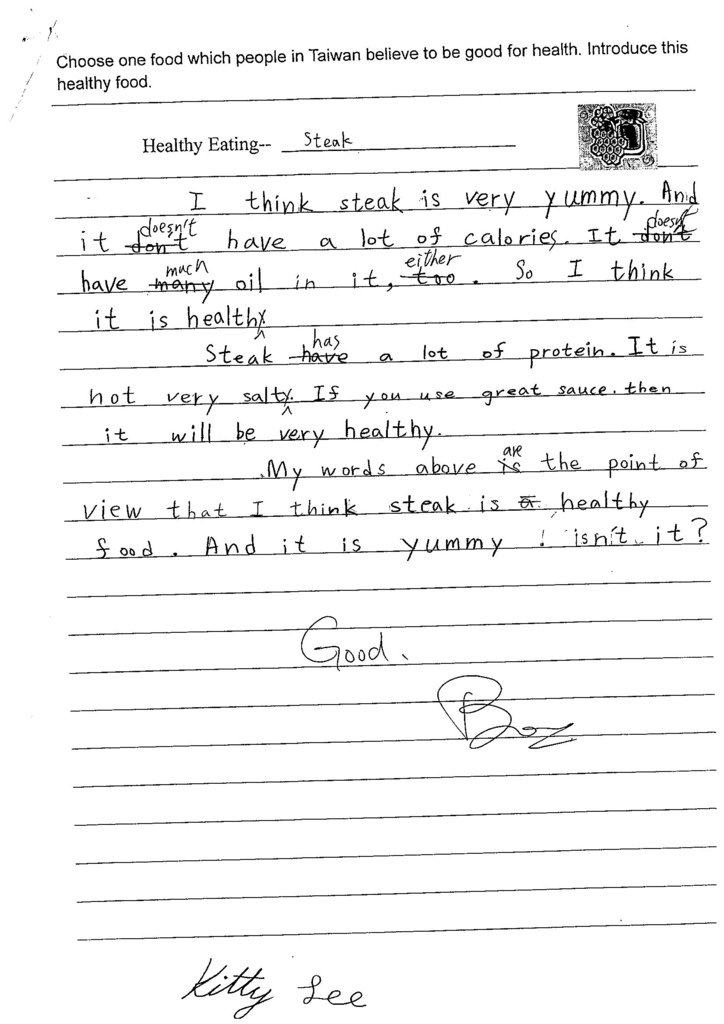 Choose one food which people in Taiwan believe to be good for health. Introduce this
healthy food.
Healthy Eating-- Steak
I think steak is very yummy. And
doesn't doesn't
it don't have a lot of calories. It don't
much either
have many oil in it, too. So I think
it is healthy.
has
Steak have a lot of protein. It is
not very salty. If you use great sauce. then
it will be very healthy.
are
My words above is the point of
view that I think steak is a healthy
food. And it is yummy ! isn't it?
Good.
Kitty Lee